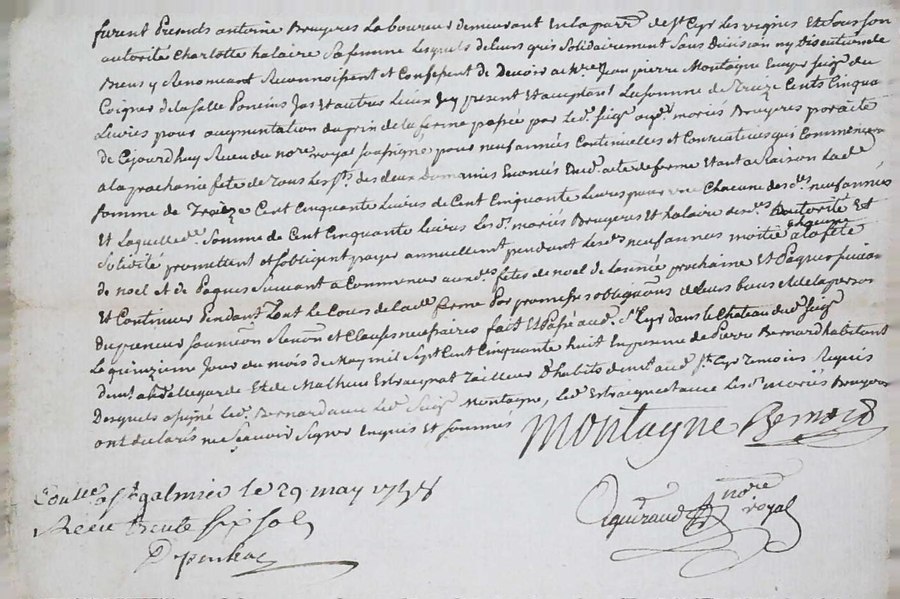 furent Presents antoine Bruyeres Laboureur demeurant En la parr.e de St Cyr Les vignes Et de sous son
autorité Charlotte halaire Sa femme Lesquels de Leurs gris Solidairement Sans Division ny Discution de
Biens y Renonçant Reconnoissent et Confessent de Devoir a Jean pierre Montagne Ecuyer Seig.r du
Coigner de la Salle Poncins Jas et autres Lieux Icy present et acceptant La somme de Treize Cents Cinqua
Livres pour augmentation du prix de la ferme passée par led. Seig.r auxd. mariés Bruyeres par acte
de Cejourdhuy Receu du no.re royal soussigné pour neuf années Continuelles et Consecutives qui Commencer
a la prochaine fete de Tous Les S.ts des deux Domaines Enoncés Aud. acte de ferme Et ant a Raison Lad.e
somme de Treize Cent Cinquante Livres de Cent Cinquante Livres pour Chacune desd.es neuf années
Et Laquelle d. Somme de Cent Cinquante Livres Les d. mariés Bruyeres Et halaire desd.es autorité Et
Solidité promettent et s'obligent payer annuellement pendant Lesd.es neuf années moitié a la fete
de noel et de Paques Suivant a Commencer auxd.es fetes de noel de L'année prochaine Et Paques suivan
Et Continuer Pendant Tout Le Cours de lad.e ferme Par promesses obligations de Leurs biens et de la person
du preneur soumission Renon et Clauses necessaires fait Et Passé aud. St Cyr dans Le Chateau dud. Seig.r
Le quinzieme Jour du mois de May mil Sept Cent Cinquante huit En presence de Pierre Bernard habitant
de Bellegarde Et de Mathieu Estraignat Tailleur D'habits dem.t aud. St Cyr Temoins Requis
Desquels a signé led. Bernard avec Led. Seig.r Montagne, Led. Estraignat avec Lesd. mariés Bruyeres
ont declarés ne Scavoir Signer Enquis Et sommés
Montagne Bernard
Con.llé a St galmier le 29 may 1758
Receu trente six sols
no.re
royal